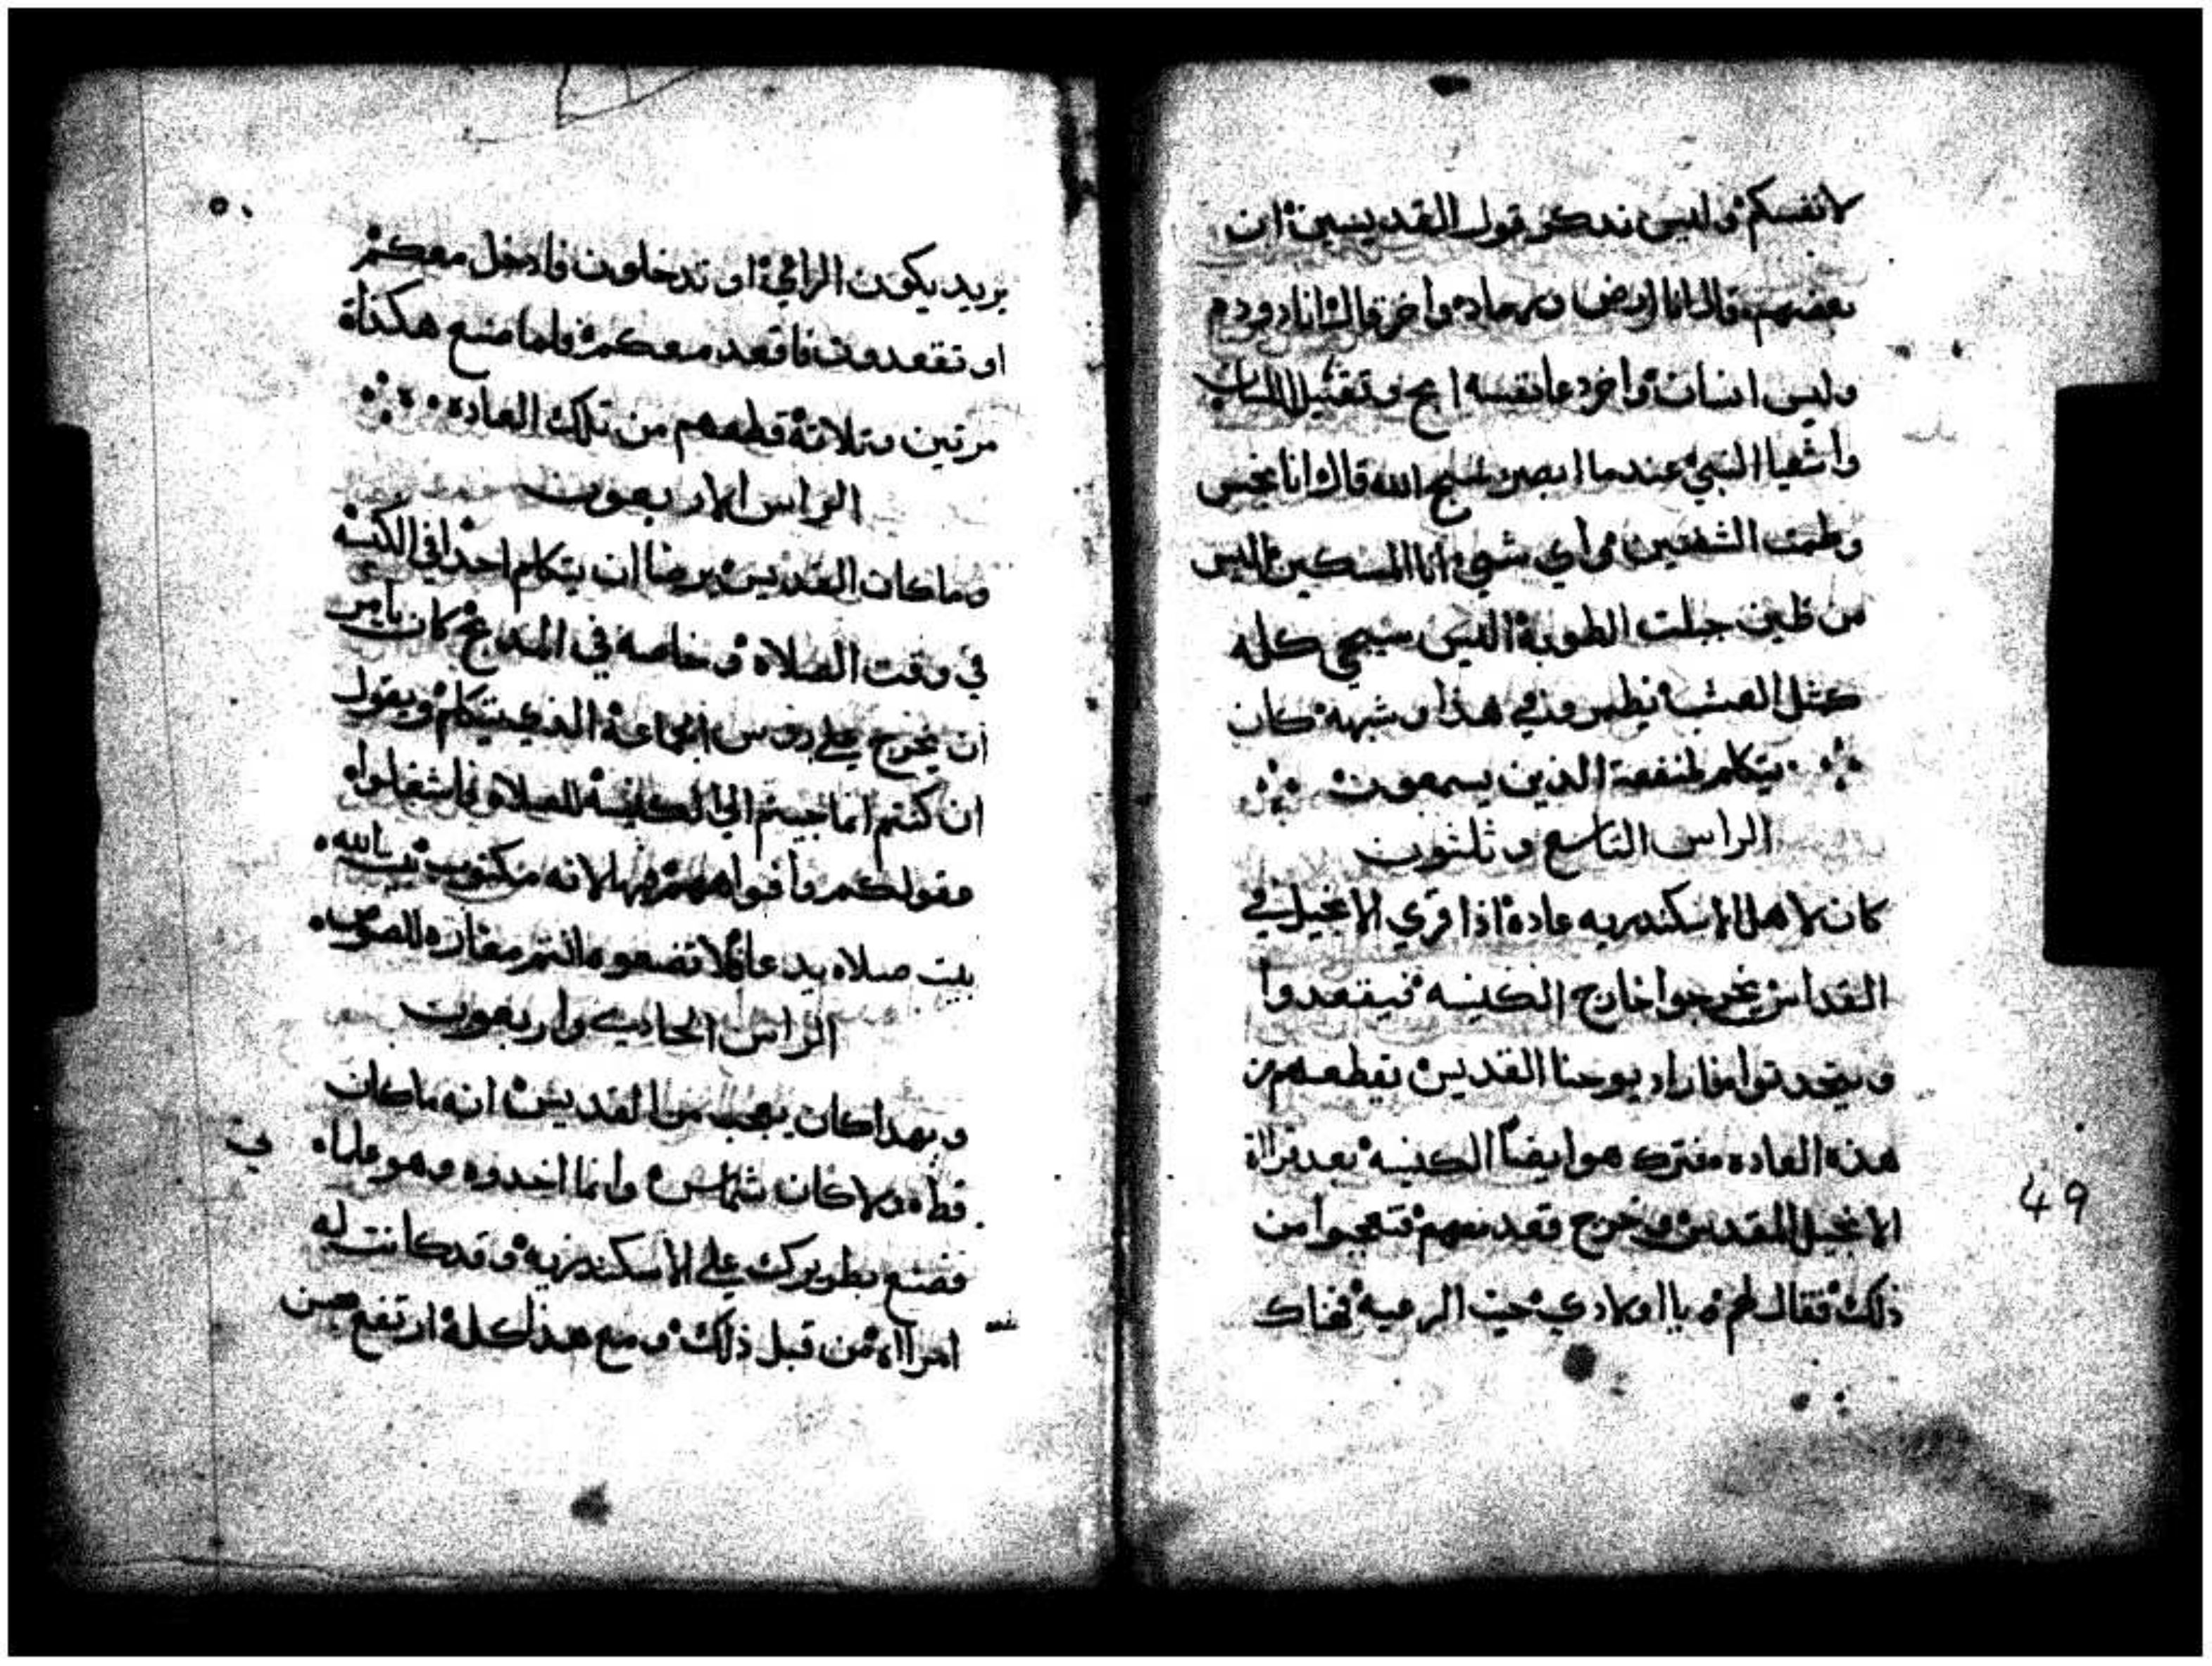 لانفسكم وليس ندكر قول القديسين ان
بعضهم قال انا ارض ورماد واخر قال انا دوده
وليس انسان واخر دعا نفسه
واشعيا النبي عندما ابصر الله قال انا نجس
الشفتين اي شي انا المسكين اليس
من طين جبلت الطوبة اليس سيمحي كله
كمثل العشب هدا وشبهه كان
يتكلم لمنفعة الذين يسمعون
الراس التاسع وثلثون
كان لاهل الاسكندريه عادة اذا قري الانجيل في
القداس يخرجوا خارج الكنيسه فيقعدوا
ويتحدتوا فاراد يوحنا القديس يقطعهم من
هذه العاده فترك هو ايضا الكنيسه بعد قراة
الانجيل المقدس وخرج قعد معهم فتعجبوا من
ذلك فقال لهم يا اولادي حيث الرعيه فهناك
49
٥٠
يريد يكون الراعي او تدخلون فادخل معكم
او تقعدون فاقعد معكم فلما صنع هكذاة
مرتين وتلاتة قطعهم من تلك العاده
الراس الاربعون
وما كان القديس يرضا ان يتكلم احدا في الكنسه
في وقت الصلاه وخاصه في المدبح كان يامر
ان يخرج علي روس الجماعة الذي يتكلم ويقول
ان كنتم انما جيتم الي الكنيسة للصلاه فاشغلوا
عقولكم وافواهكم بها لانه مكتوب بيت الله
بيت صلاه يدعا فلا تضعوه انتم مغاره للصوص
الراس الحادي واربعون
وبهدا كان يعجب من القديس انه ما كان
قط ولا كان شماس وانما اخدوه وهو علماه
فصنع بطريرك علي الاسكندريه وقد كانت له
امرااه من قبل ذلك ومع هذا كله ارتفع